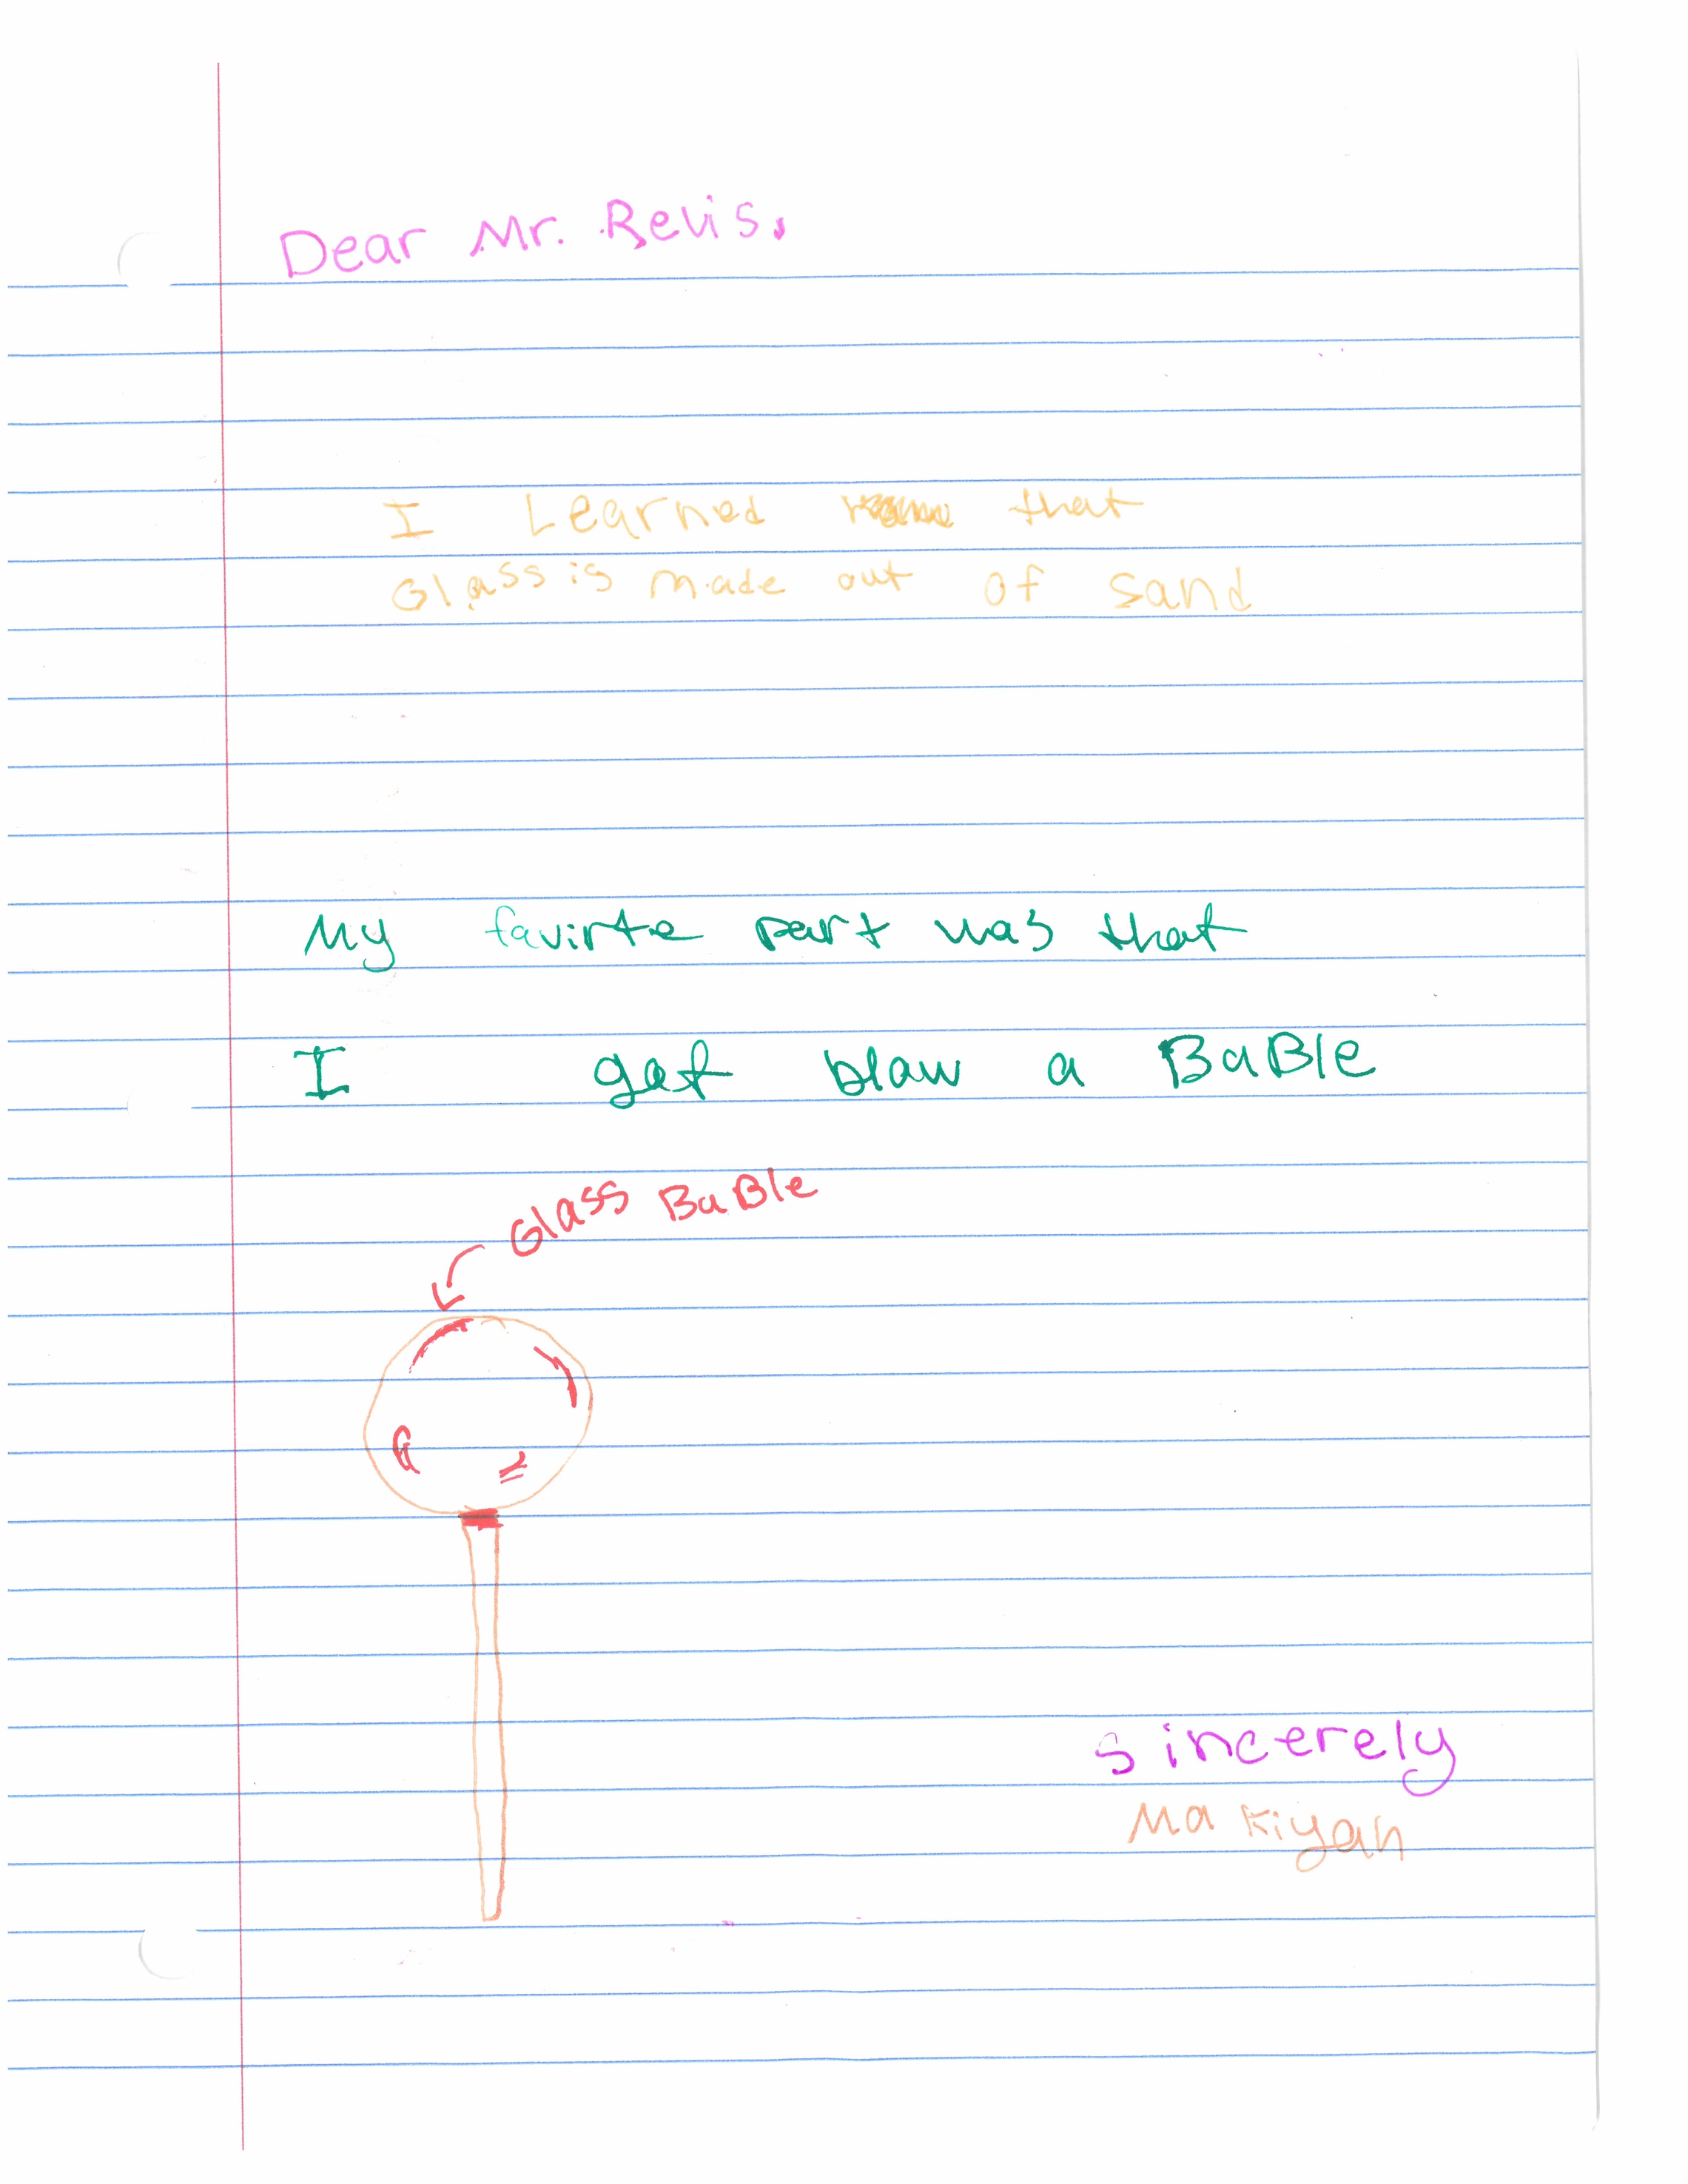 Dear Mr. Revis,
I Learned that
Glass is made out of sand
My favirte part was that
I get blaw a BaBle
Glass BaBle
sincerely
Makiyah